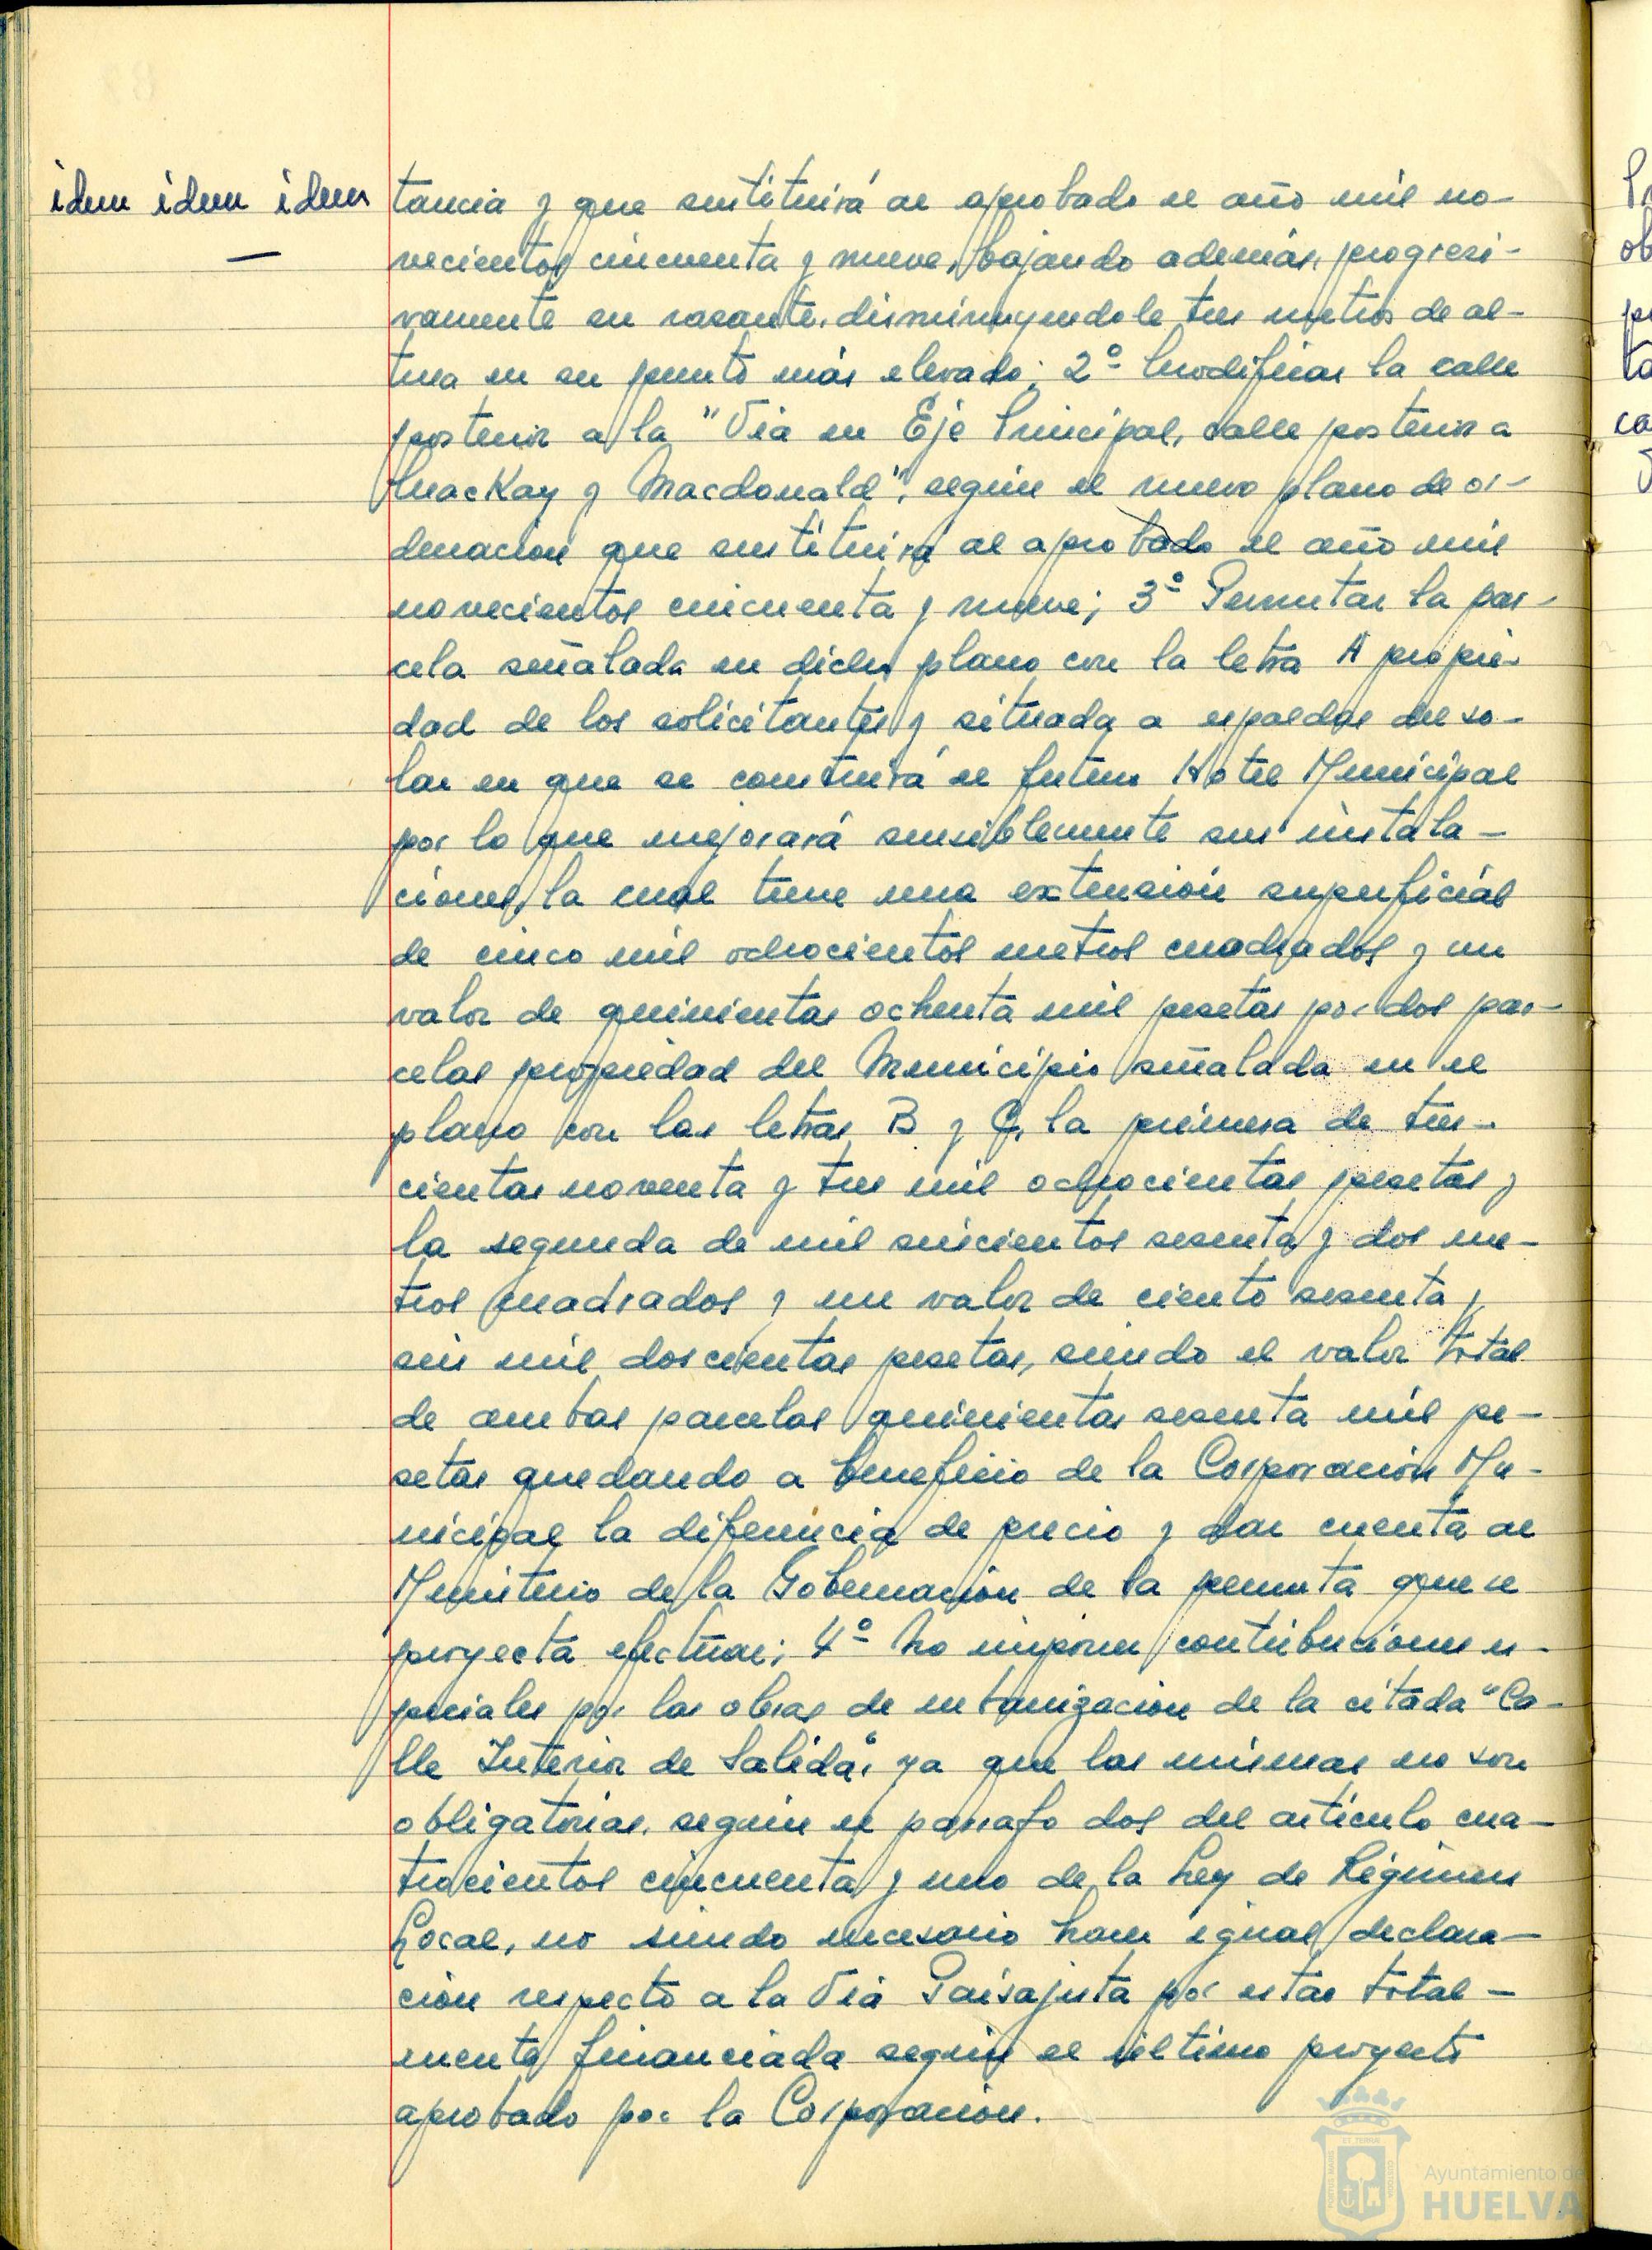 idem idem idem
tancia y que sustituirá al aprobado el año mil no-
vecientos cincuenta y nueve, bajando además, progresi-
vamente su rasante, disminuyendole tres metros de al-
tura en su punto más elevado; 2º Modificar la calle
posterior a la "Vía en Eje Principal, calle posterior a
MacKay y Macdonald", según el nuevo plano de or-
denación que sustituirá al aprobado el año mil
novecientos cincuenta y nueve; 3º Permutar la par-
cela señalada en dicho plano con la letra A propie-
dad de los solicitantes y situada a espaldas del so-
lar en que se construirá el futuro Hotel Municipal
por lo que mejorará sensiblemente sus instala-
ciones, la cual tiene una extensión superficial
de cinco mil ochocientos metros cuadrados y un
valor de quinientas ochenta mil pesetas por dos par-
celas propiedad del Municipio señalada en el
plano con las letras B y C, la primera de tres-
cientas noventa y tres mil ochocientas pesetas y
la segunda de mil seiscientos sesenta y dos me-
tros cuadrados y un valor de ciento sesenta y
seis mil doscientas pesetas, siendo el valor total
de ambas parcelas quinientas sesenta mil pe-
setas quedando a beneficio de la Corporación Mu-
nicipal la diferencia de precio y dar cuenta al
Ministerio de la Gobernación de la permuta que se
proyecta efectuar; 4º No imponer contribuciones es-
peciales por las obras de urbanización de la citada "Ca-
lle Interior de Salida", ya que las mismas no son
obligatorias, según el parrafo dos del artículo cua-
trocientos cincuenta y uno de la Ley de Régimen
Local, no siendo necesario hacer igual declara-
ción respecto a la Vía Paisajista por estar total-
mente financiada según el último proyecto
aprobado por la Corporación.
Ayuntamiento de
HUELVA